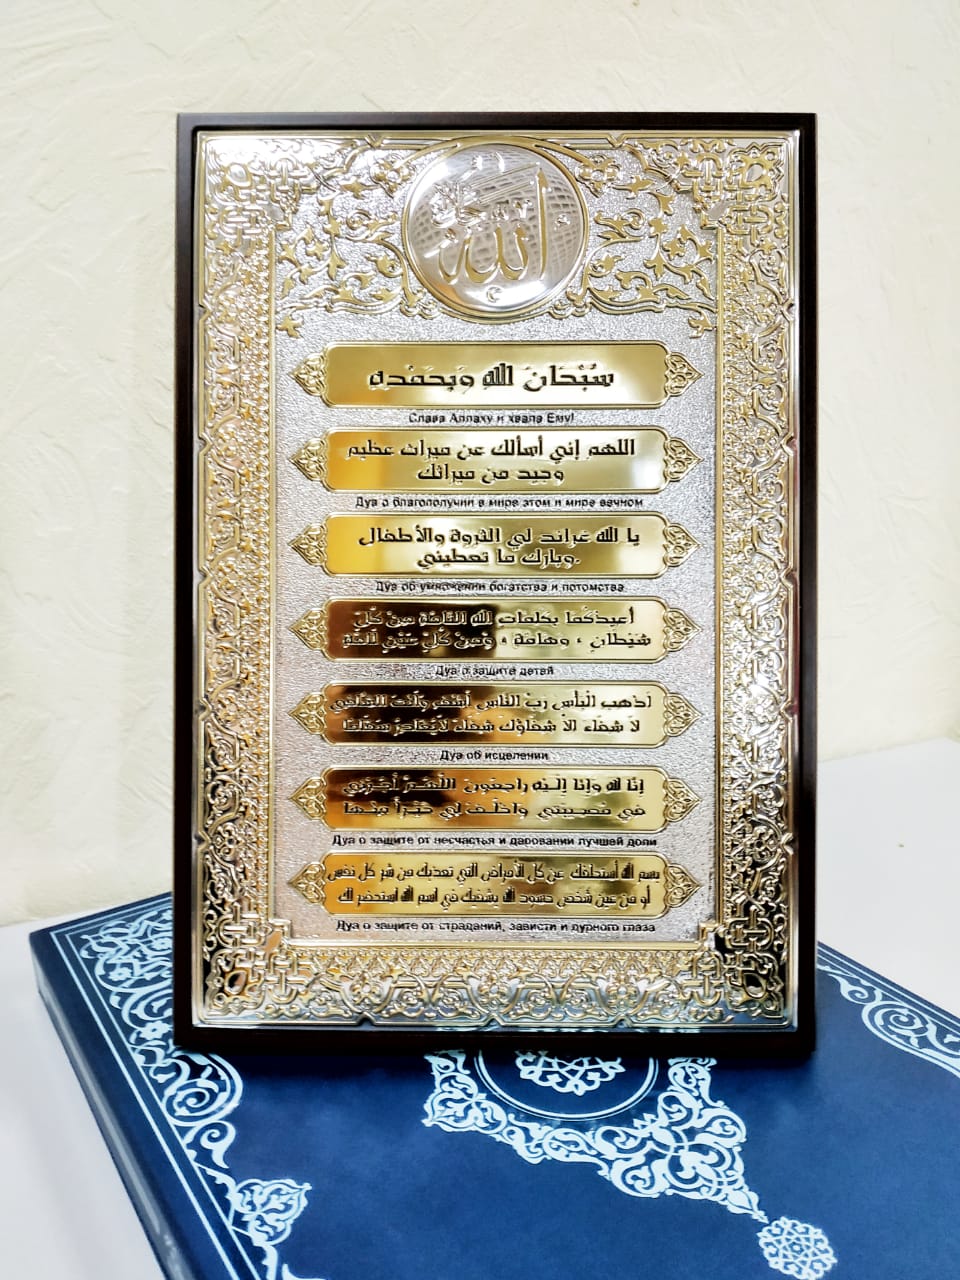 الله
سُبْحَانَ اللهِ وَبِحَمْدِهِ
Слава Аллаху и хвала Ему!
اللهم إني أسألك عن ميراث عظيم
وجيد من ميراثك
Дуа о благополучии в мире этом и мире вечном
يا الله غراند لي الثروة والأطفال
وبارك ما تعطيني.
Дуа об умножении богатства и потомства
أعيذكما بكلمات الله التامة من كل
شيطان، وهامة، ومن كل عين لامة
Дуа о защите детей
اذهب البأس رب الناس اشف وأنت الشافي
لا شفاء الا شفاؤك شفاء لا يغادر سقما
Дуа об исцелении
إنا لله وإنا إليه راجعون اللهم أجرني
في مصيبتي واخلف لي خيرا منها
Дуа о защите от несчастья и даровании лучшей доли
بسم الله عن كل الأمراض التي تعذبك من شر كل نفس
أو من عين شخص حسود الله يشفيك في اسم الله استحضر لك
Дуа о защите от страданий, зависти и дурного глаза